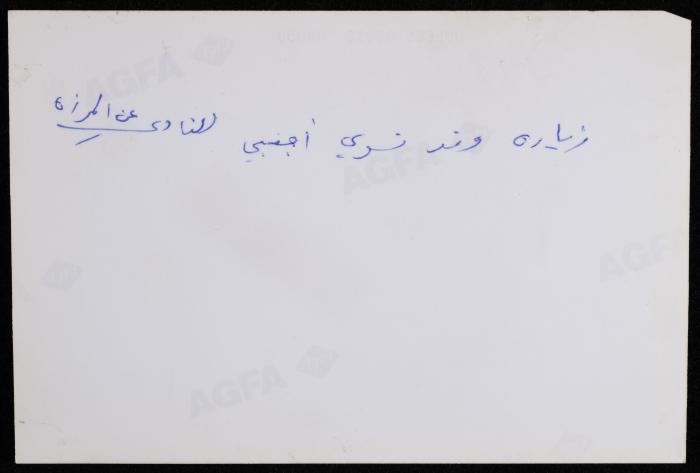 زيارة وفد نسوي أجنبي للنادي عن المرأة
AGFA
AGFA
AGFA
AGFA